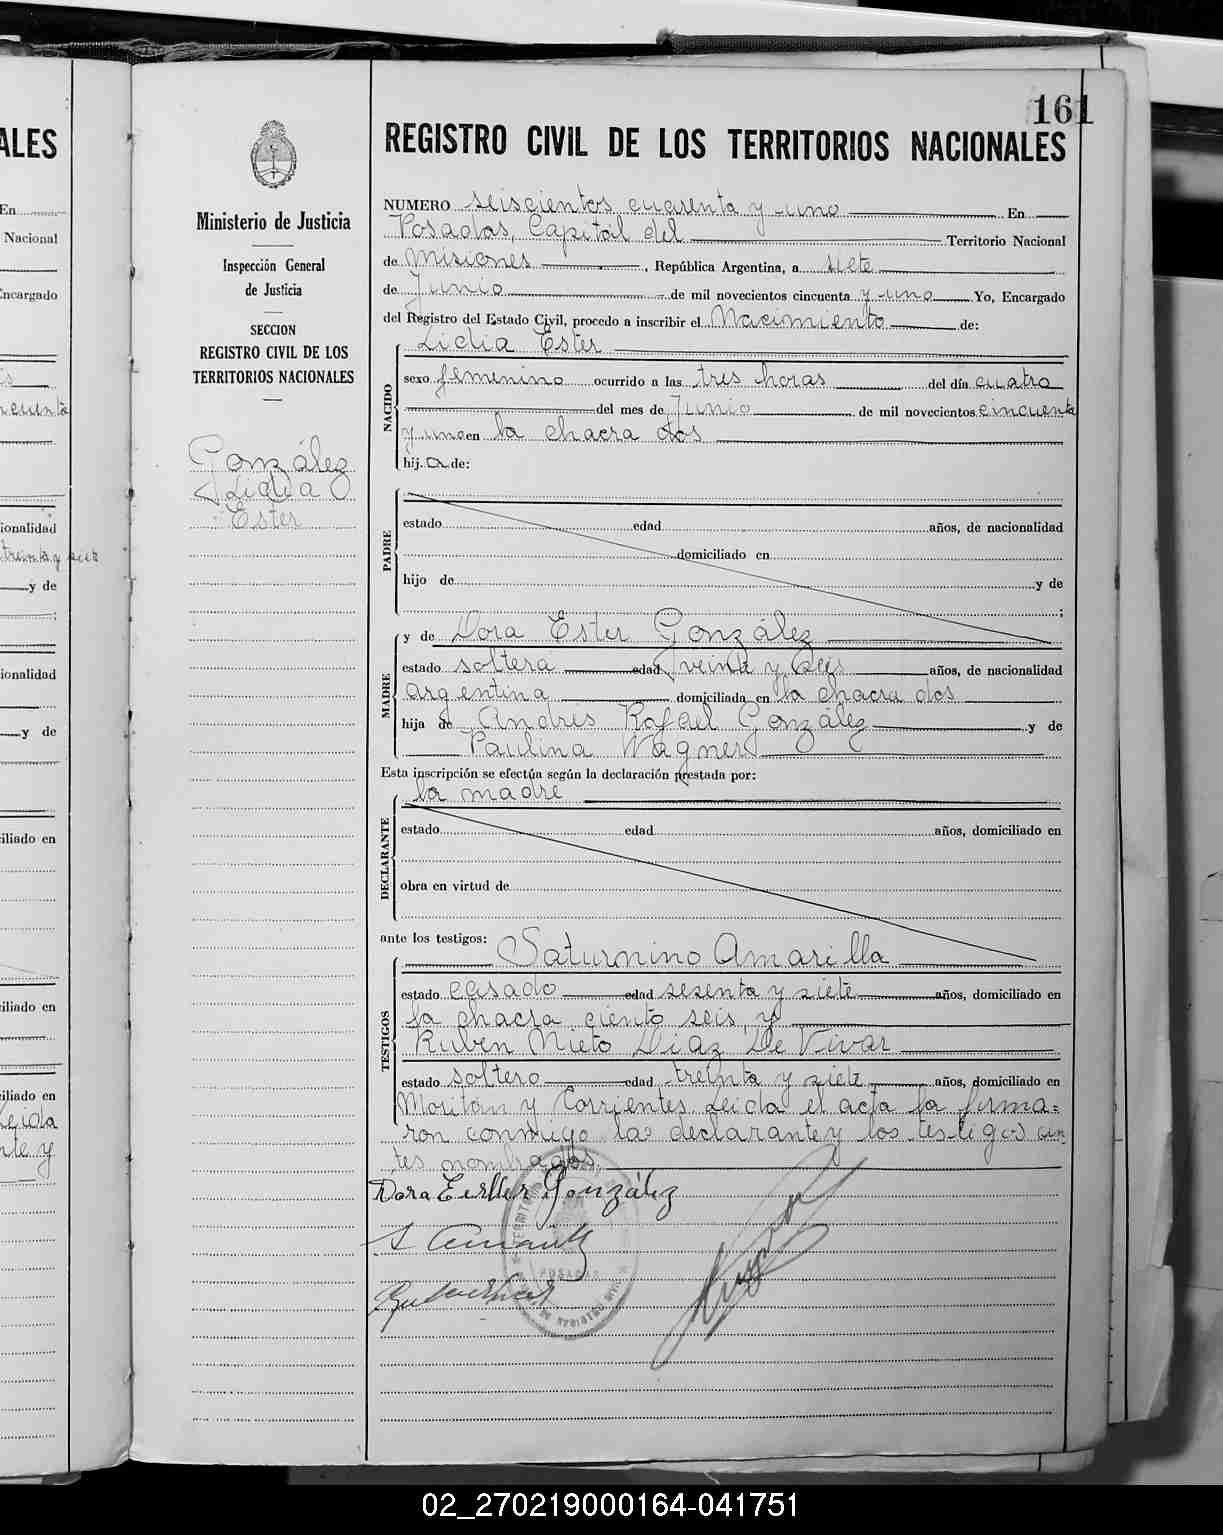 161
REGISTRO CIVIL DE LOS TERRITORIOS NACIONALES
Ministerio de Justicia
Inspección General
de Justicia
SECCION
REGISTRO CIVIL DE LOS
TERRITORIOS NACIONALES
González
Lidia
Ester
NUMERO seiscientos cuarenta y uno En
Posadas, Capital del Territorio Nacional
de Misiones, República Argentina, a siete
de Junio de mil novecientos cincuenta y uno Yo, Encargado
del Registro del Estado Civil, procedo a inscribir el Nacimiento de:
NACIDO
Lidia Ester
sexo femenino ocurrido a las tres horas del día cuatro
del mes de Junio de mil novecientos cincuenta
y uno en la chacra dos
hij a de:
PADRE
estado edad años, de nacionalidad
domiciliado en
hijo de y de
;
MADRE
y de Dora Ester González
estado soltera edad veinte y seis años, de nacionalidad
argentina domiciliada en la chacra dos
hija de Andrés Rafael González y de
Paulina Wagner
Esta inscripción se efectúa según la declaración prestada por:
DECLARANTE
la madre
estado edad años, domiciliado en
obra en virtud de
ante los testigos:
TESTIGOS
Saturnino Amarilla
estado casado edad sesenta y siete años, domiciliado en
la chacra ciento seis, y
Rubén Nieto Díaz De Vivar
estado soltero edad treinta y siete años, domiciliado en
Moritán y Corrientes. Leida el acta la firma=
ron conmigo la declarante y los testigos an
tes nombrados.
Dora Esther González
POSADAS
ALES
En
Nacional
Encargado
ionalidad
treinta y seis
y de
ionalidad
y de
iliado en
iliado en
iliado en
Leida
nte y
02_270219000164-041751